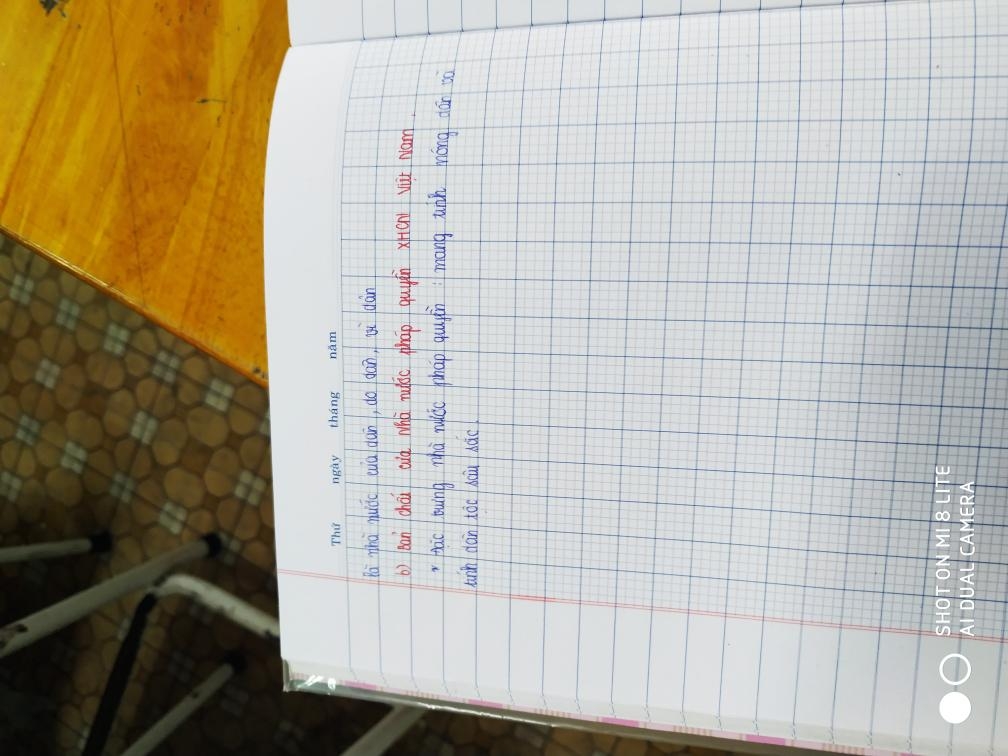 Thứ ngày tháng năm
là nhà nước của dân, do dân, vì dân
b) Bản chất của nhà nước pháp quyền XHCN Việt Nam.
* Đặc trưng nhà nước pháp quyền : mang tính nông dân và
tính dân tộc sâu sắc.
SHOT ON MI 8 LITE
AI DUAL CAMERA